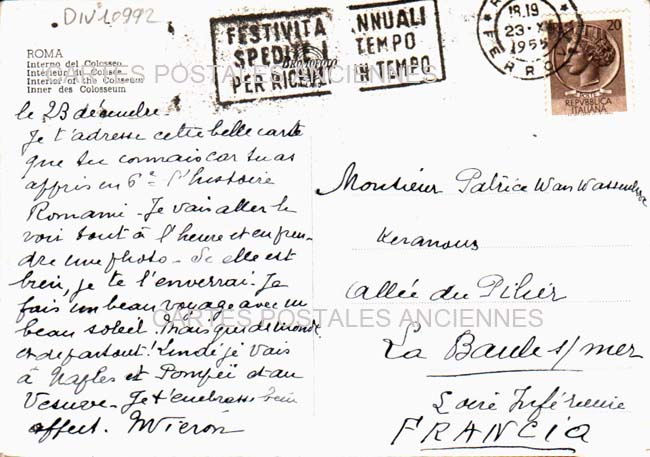 DIV10992
ROMA
Interno del Colosseo
Intérieur du Colisée
Interior of the Coliseum
Inner des Colosseum
FESTIVITÀ ANNUALI
SPEDITE TEMPO
PER RICEV IN TEMPO
BROMOFOTO
18.19
23.XII
1955
FERRO
20
POSTE
REPVBBLICA
ITALIANA
CARTES POSTALES ANCIENNES
le 23 décembre
Je t'adresse cette belle carte
que tu connais car tu as
appris en 6e l'histoire
Romaine - Je vais aller le
voir tout à l'heure et en pren-
dre une photo - Si elle est
bien, je te l'enverrai. Je
fais un beau voyage avec un
beau soleil. Mais que de monde
et de partout! Lundi je vais
à Naples et Pompeï et au
Vesuve - Je t'embrasse bien
affect.
Monsieur Patrice Van
Keranous
Allée du Pihér
La Baule s/mer
Loire Inférieure
FRANCIA
CARTES POSTALES ANCIENNES